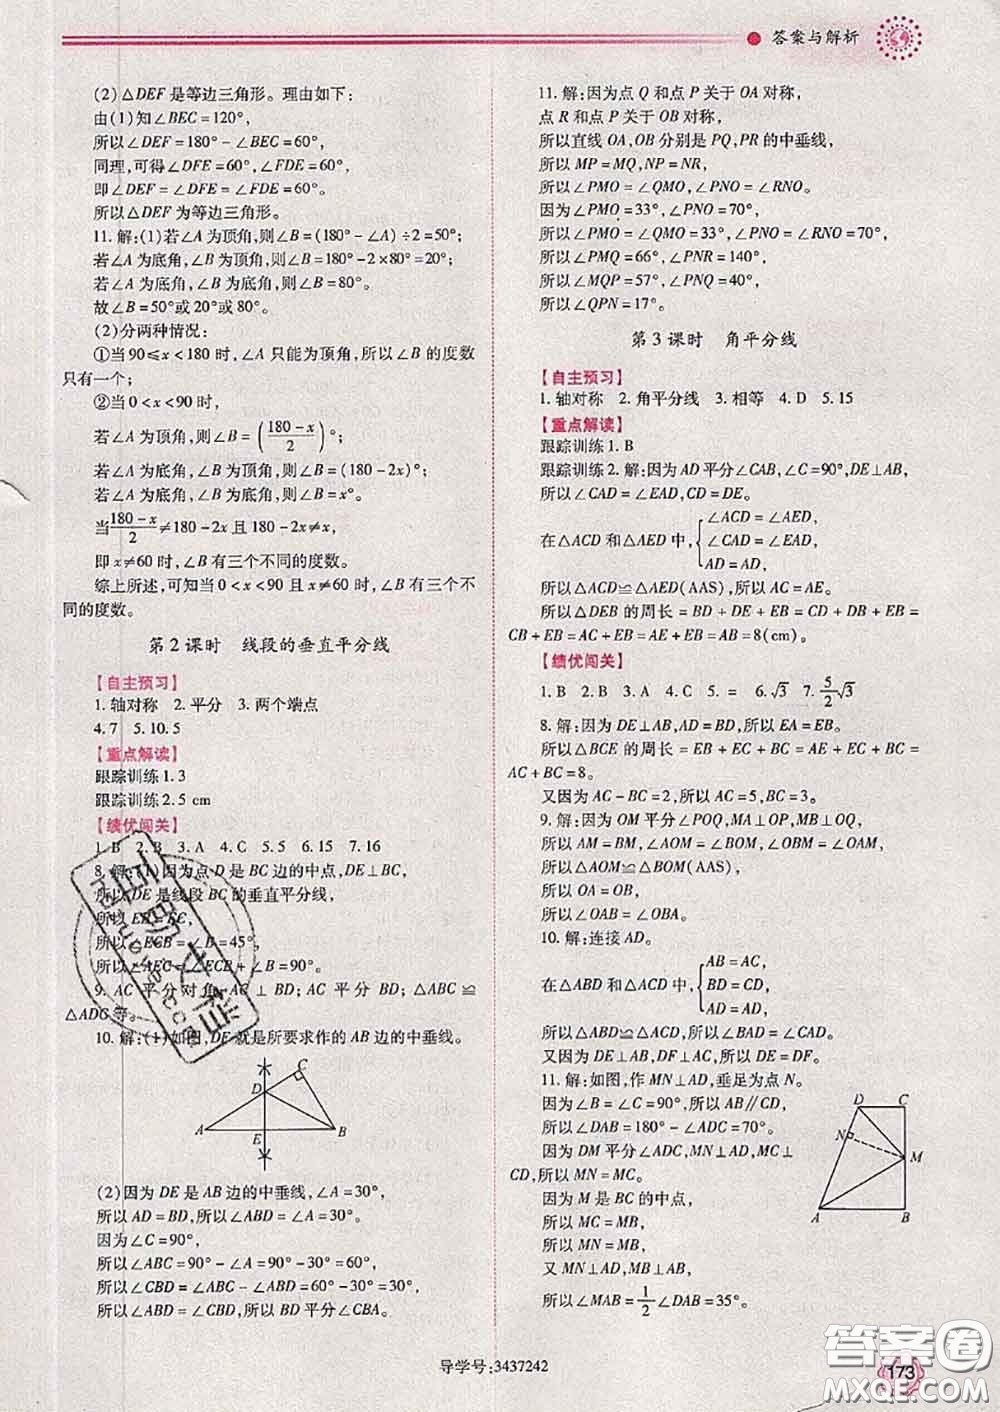 答案与解析
(2)△DEF是等边三角形。理由如下:
由(1)知∠BEC=120°,
所以∠DEF=180°-∠BEC=60°,
同理,可得∠DFE=60°,∠FDE=60°,
即∠DEF=∠DFE=∠FDE=60°,
所以△DEF为等边三角形。
11.解:(1)若∠A为顶角,则∠B=(180°-∠A)÷2=50°;
若∠A为底角,∠B为顶角,则∠B=180°-2×80°=20°;
若∠A为底角,∠B为底角,则∠B=80°。
故∠B=50°或20°或80°。
(2)分两种情况:
①当90≤x<180时,∠A只能为顶角,所以∠B的度数
只有一个;
②当0<x<90时,
若∠A为顶角,则∠B=((180-x)/2)°;
若∠A为底角,∠B为顶角,则∠B=(180-2x)°;
若∠A为底角,∠B为底角,则∠B=x°。
当(180-x)/2≠180-2x且180-2x≠x,
即x≠60时,∠B有三个不同的度数。
综上所述,可知当0<x<90且x≠60时,∠B有三个不
同的度数。
第2课时 线段的垂直平分线
【自主预习】
1.轴对称 2.平分 3.两个端点
4.7 5.10.5
【重点解读】
跟踪训练1.3
跟踪训练2.5 cm
【绩优闯关】
1.B 2.B 3.A 4.C 5.5 6.15 7.16
8.解:(1)因为点D是BC边的中点,DE⊥BC,
所以DE是线段BC的垂直平分线,
所以EB=EC,
所以∠ECB=∠B=45°,
所以∠AEC=∠ECB+∠B=90°。
9.AC平分对角;AC⊥BD;AC平分BD;△ABC≌
△ADC等。
10.解:(1)如图,DE就是所要求作的AB边的中垂线。
C
D
A
E
B
(2)因为DE是AB边的中垂线,∠A=30°,
所以AD=BD,所以∠ABD=∠A=30°,
因为∠C=90°,
所以∠ABC=90°-∠A=90°-30°=60°,
所以∠CBD=∠ABC-∠ABD=60°-30°=30°,
所以∠ABD=∠CBD,所以BD平分∠CBA。
11.解:因为点Q和点P关于OA对称,
点R和点P关于OB对称,
所以直线OA,OB分别是PQ,PR的中垂线,
所以MP=MQ,NP=NR,
所以∠PMO=∠QMO,∠PNO=∠RNO。
因为∠PMO=33°,∠PNO=70°,
所以∠PMO=∠QMO=33°,∠PNO=∠RNO=70°,
所以∠PMQ=66°,∠PNR=140°,
所以∠MQP=57°,∠PQN=40°,
所以∠QPN=17°。
第3课时 角平分线
【自主预习】
1.轴对称 2.角平分线 3.相等 4.D 5.15
【重点解读】
跟踪训练1.B
跟踪训练2.解:因为AD平分∠CAB,∠C=90°,DE⊥AB,
所以∠CAD=∠EAD,CD=DE。
在△ACD和△AED中,{∠ACD=∠AED,
∠CAD=∠EAD,
AD=AD,
所以△ACD≌△AED(AAS),所以AC=AE。
所以△DEB的周长=BD+DE+EB=CD+DB+EB=
CB+EB=AC+EB=AE+EB=AB=8(cm)。
【绩优闯关】
1.B 2.B 3.A 4.C 5.= 6.√3 7.5/2√3
8.解:因为DE⊥AB,AD=BD,所以EA=EB。
所以△BCE的周长=EB+EC+BC=AE+EC+BC=
AC+BC=8。
又因为AC-BC=2,所以AC=5,BC=3。
9.解:因为OM平分∠POQ,MA⊥OP,MB⊥OQ,
所以AM=BM,∠AOM=∠BOM,∠OBM=∠OAM,
所以△AOM≌△BOM(AAS),
所以OA=OB,
所以∠OAB=∠OBA。
10.解:连接AD。
在△ABD和△ACD中,{AB=AC,
BD=CD,
AD=AD,
所以△ABD≌△ACD,所以∠BAD=∠CAD。
又因为DE⊥AB,DF⊥AC,所以DE=DF。
11.解:如图,作MN⊥AD,垂足为点N。
因为∠B=∠C=90°,所以AB∥CD,
所以∠DAB=180°-∠ADC=70°。
因为DM平分∠ADC,MN⊥AD,MC⊥
CD,所以MN=MC。
因为M是BC的中点,
所以MC=MB,
所以MN=MB,
又MN⊥AD,MB⊥AB,
所以∠MAB=1/2∠DAB=35°。
D
C
N
M
A
B
导学号:3437242
173
答案圈
MXQE.COM